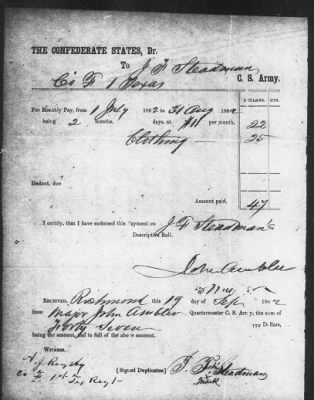 THE CONFEDERATE STATES, Dr.
To J. F. Steadman
Co F 1 Texas C. S. Army.
DOLLARS. CTS.
For Monthly Pay, from 1 July 1862 to 31 Aug 1862
being 2 months, days, at $11 per month, 22
Clothing 25
Deduct, due
Amount paid, 47
I certify, that I have endorsed this payment on J F Steadman's
Descriptive Roll.
John Ambler
Received, Richmond this 19 day of Sep 1862
from Major John Ambler Quartermaster C. S. Army, the sum of
Forty Seven Dollars,
being the amount, and in full of the above account.
Witness.
[Signed Duplicates] J. F. his Steadman
mark